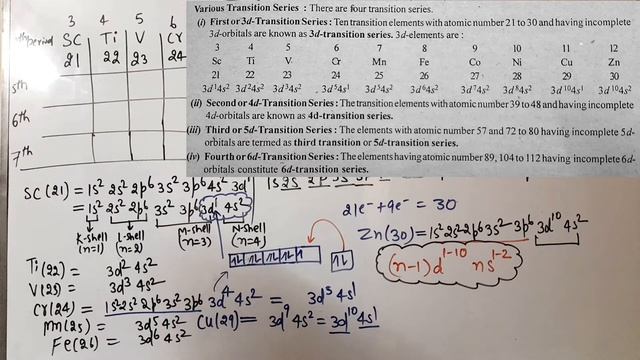 Various Transition Series : There are four transition series.
(i) First or 3d-Transition Series: Ten transition elements with atomic number 21 to 30 and having incomplete
3d-orbitals are known as 3d-transition series. 3d-elements are :
3 4 5 6 7 8 9 10 11 12
Sc Ti V Cr Mn Fe Co Ni Cu Zn
21 22 23 24 25 26 27 28 29 30
3d¹4s² 3d²4s² 3d³4s² 3d⁵4s¹ 3d⁵4s² 3d⁶4s² 3d⁷4s² 3d⁸4s² 3d¹⁰4s¹ 3d¹⁰4s²
(ii) Second or 4d-Transition Series : The transition elements with atomic number 39 to 48 and having incomplete
4d-orbitals are known as 4d-transition series.
(iii) Third or 5d-Transition Series : The elements with atomic number 57 and 72 to 80 having incomplete 5d-
orbitals are termed as third transition or 5d-transition series.
(iv) Fourth or 6d-Transition Series : The elements having atomic number 89, 104 to 112 having incomplete 6d-
orbitals constitute 6d-transition series.
3 4 5 6
period Sc Ti V Cr
21 22 23 24
5th
6th
7th
Sc(21) = 1s² 2s² 2p⁶ 3s² 3p⁶ 4s² 3d¹
= 1s² 2s² 2p⁶ 3s² 3p⁶ 3d¹ 4s²
K-shell (n=1) L-shell (n=2) M-shell (n=3) N-shell (n=4)
21e⁻+9e⁻ = 30
Zn(30)=1s² 2s² 2p⁶ 3s² 3p⁶ 3d¹⁰ 4s²
(n-1)d¹⁻¹⁰ ns¹⁻²
Ti(22) = 3d² 4s²
V(23) = 3d³ 4s²
Cr(24) = 1s² 2s² 2p⁶ 3s² 3p⁶ 3d⁴ 4s² = 3d⁵ 4s¹
Mn(25) = 3d⁵ 4s²
Cu(29) = 3d⁹ 4s² = 3d¹⁰ 4s¹
Fe(26) = 3d⁶ 4s²